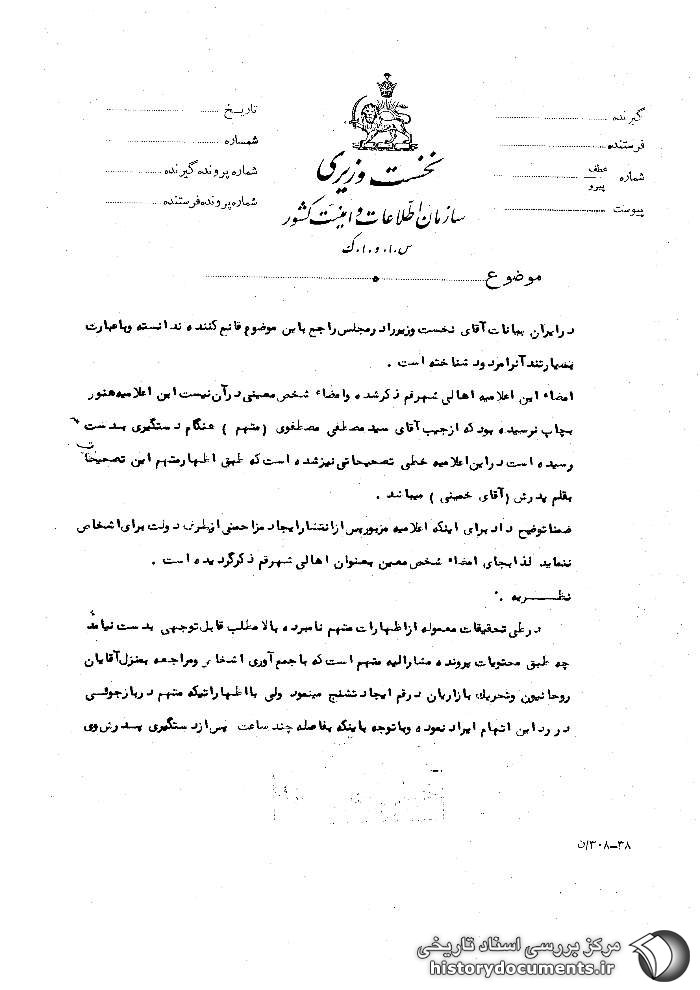 تاریخ
شماره
شماره پرونده گیرنده
شماره پرونده فرستنده
گیرنده
فرستنده
شماره
عطف
پیرو
پیوست
نخست وزیری
سازمان اطلاعات و امنیت کشور
س.ا.و.ا.ک
موضوع
در ایران بیانات آقای نخست وزیر در مجلس راجع باین موضوع قانع کننده ندانسته وبا عبارت
بسیار تند آنرا مردود شناخته است .
امضاء این اعلامیه اهالی شهر قم ذکر شده وامضاء شخص معینی در آن نیست این اعلامیه هنوز
بچاپ نرسیده بود که از جیب آقای سید مصطفی مصطفوی (متهم ) هنگام دستگیری بدست
رسیده است در این اعلامیه خطی تصحیحاتی نیز شده است که طبق اظهار متهم این تصحیحات
بقلم پدرش (آقای خمینی ) میباشد .
ضمنا توضیح داد برای اینکه اعلامیه مزبور پس از انتشار ایجاد مزاحمتی از طرف دولت برای اشخاص
ننماید لذا بجای امضاء شخص معین بعنوان اهالی شهر قم ذکر گردیده است .
نظـــریه .
در طی تحقیقات معموله از اظهارات متهم نامبرده بالا مطلب قابل توجهی بدست نیامد
چه طبق محتویات پرونده مشارالیه متهم است که با جمع آوری اشخاص ومراجعه بمنزل آقایان
روحانیون وتحریک بازاریان در قم ایجاد تشنج مینمود ولی با اظهاراتیکه متهم در بازجوئی
در رد این اتهام ایراد نموده وبا توجه باینکه بفاصله چند ساعت پس از دستگیری پدرش وی
۳۰۸-۳۸/ن
مرکز بررسی اسناد تاریخی
historydocuments.ir